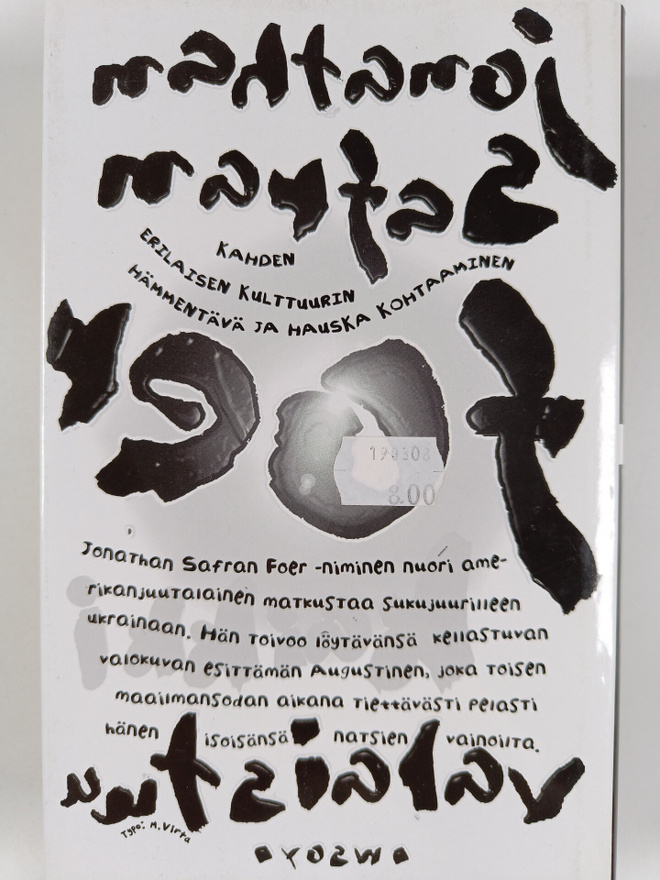 jonathan
safran
KAHDEN
ERILAISEN KULTTUURIN
HÄMMENTÄVÄ JA HAUSKA KOHTAAMINEN
foer
190308
8.00
Jonathan Safran Foer -niminen nuori ame-
rikanjuutalainen matkustaa sukujuurilleen
ukrainaan. Hän toivoo löytävänsä kellastuvan
valokuvan esittämän Augustinen, joka toisen
maailmansodan aikana tiettävästi pelasti
hänen isoisänsä natsien vainoilta.
valaistuu
Typo: M. Virta
• WSOY •